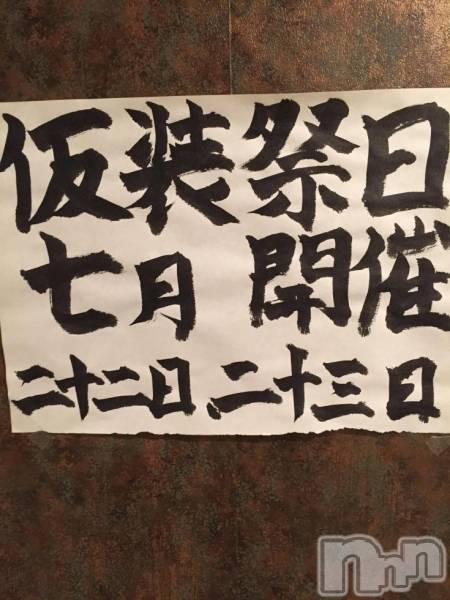 仮装祭日
七月 開催
二十二日、二十三日
nnn